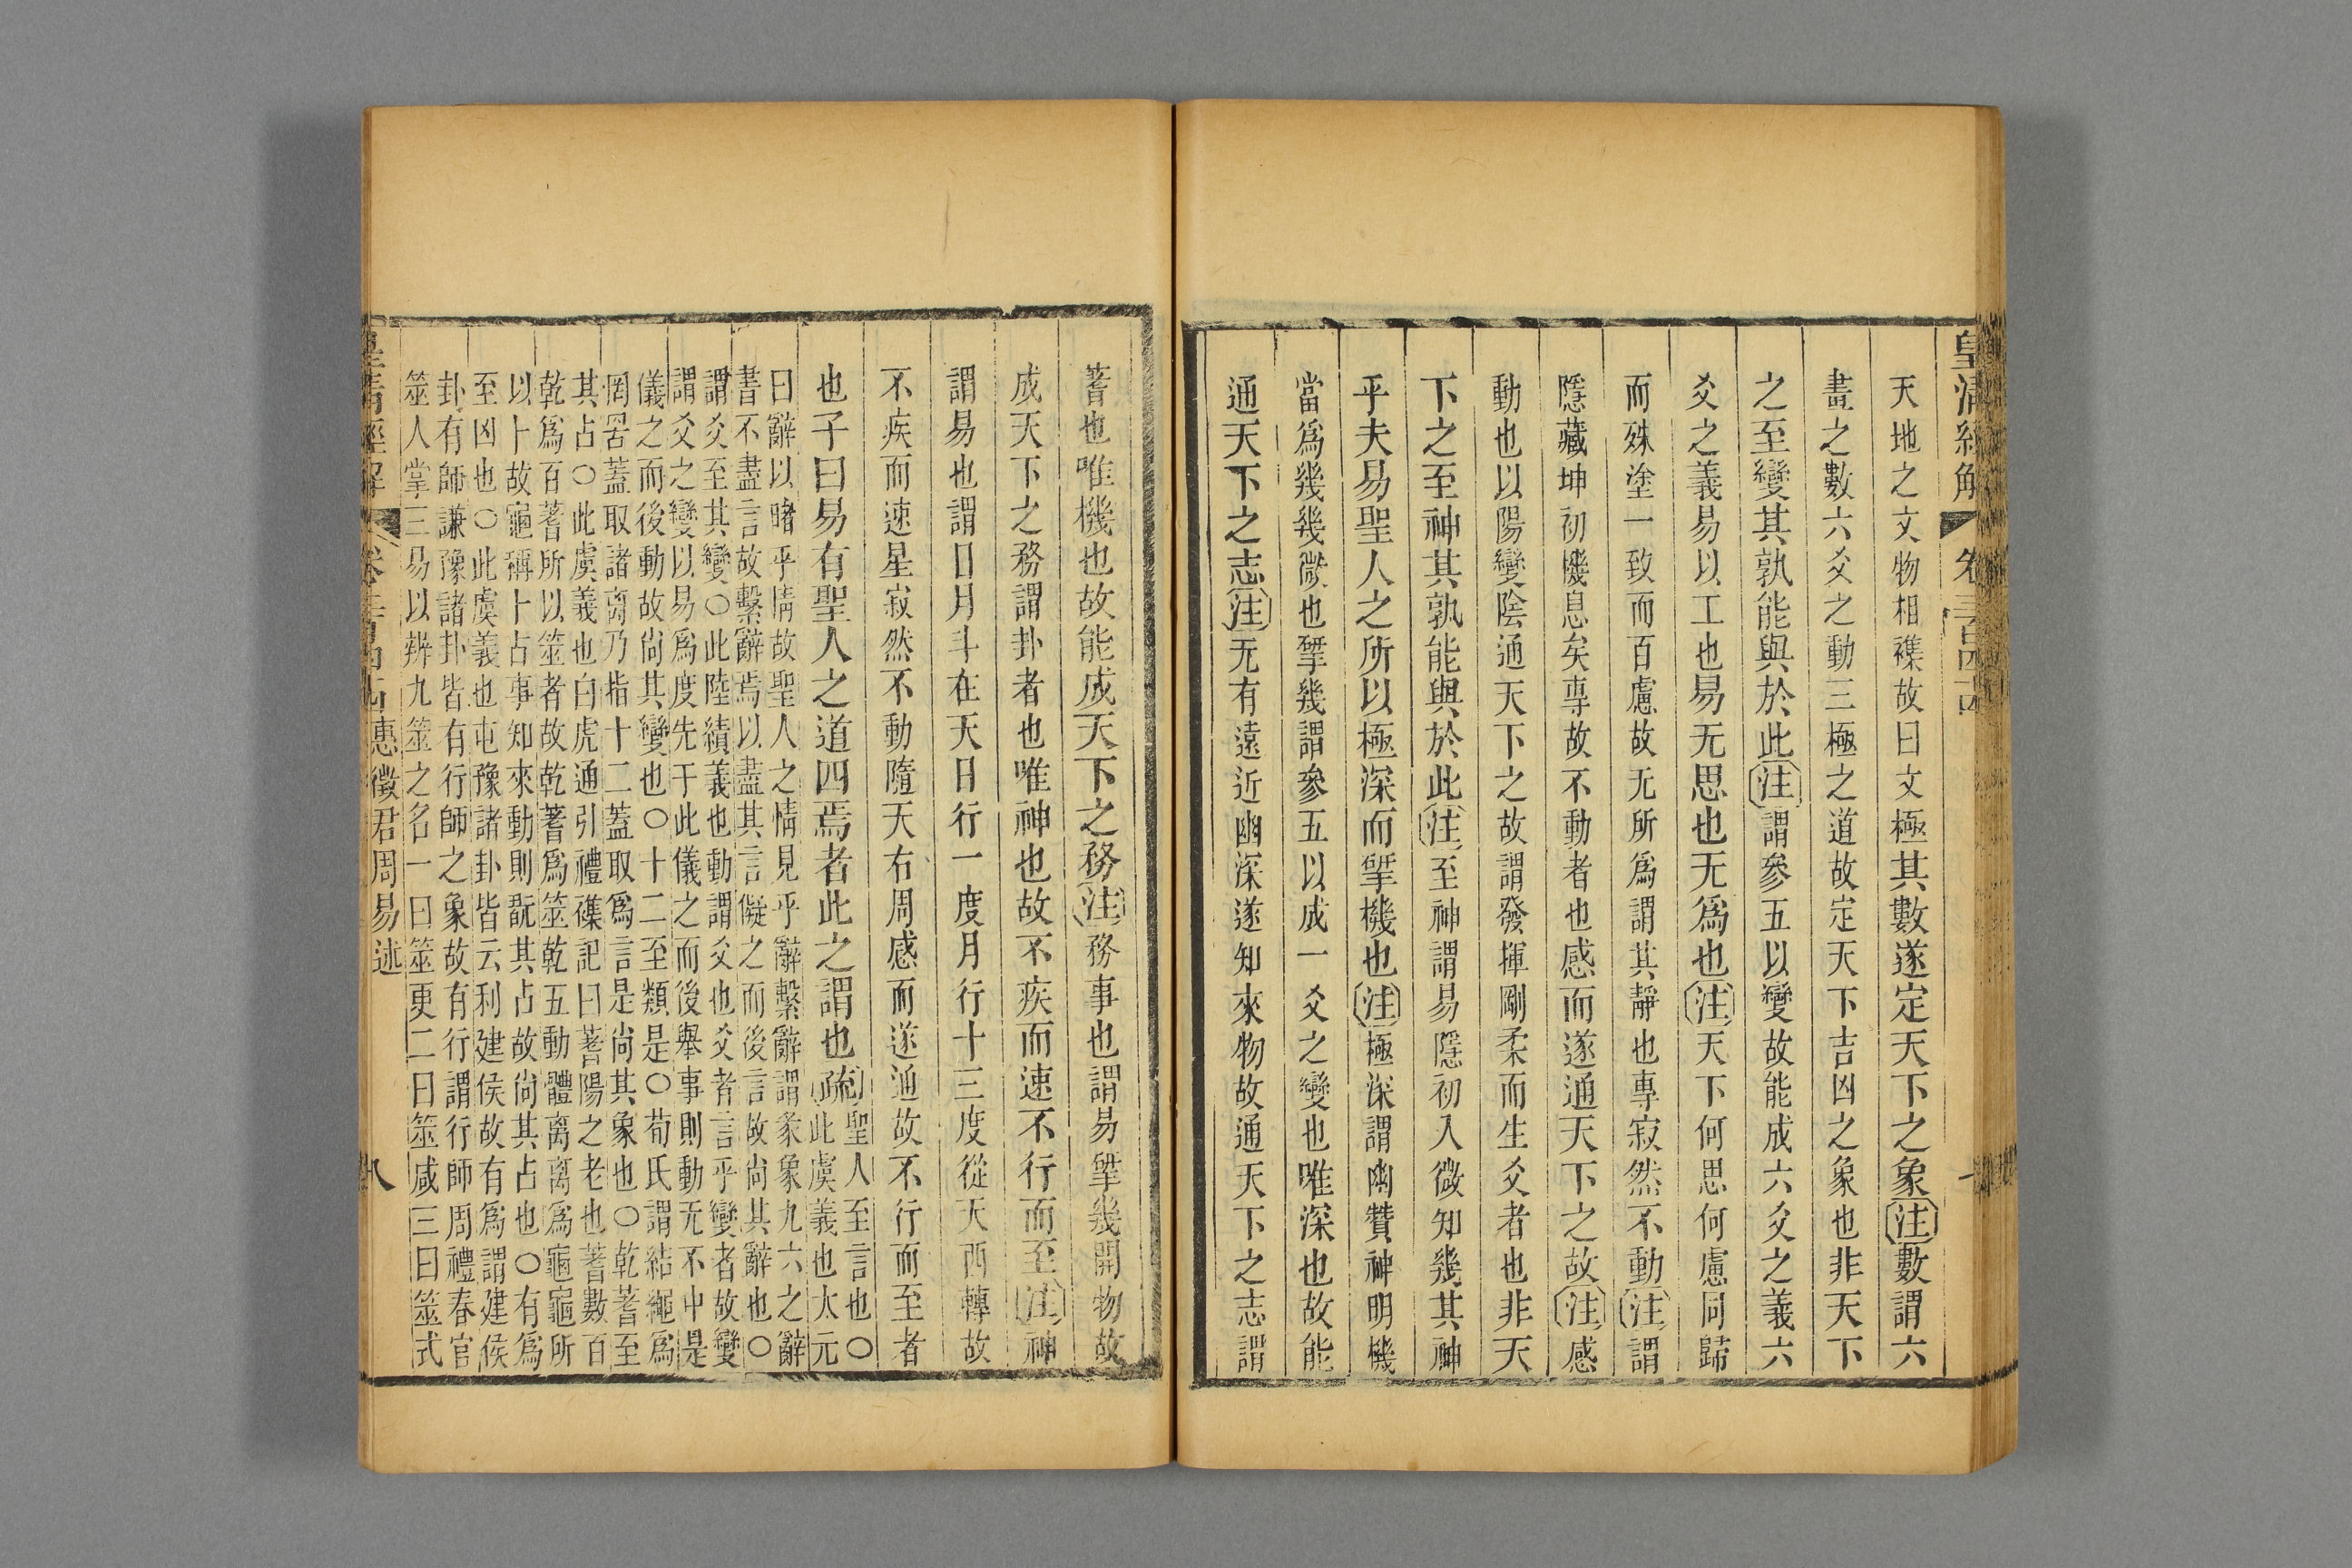 皇清經解
卷三百四十四
天地之文物相襍故曰文極其數遂定天下之象注數謂六
畫之數六爻之動三極之道故定天下吉凶之象也非天下
之至變其孰能與於此注謂參五以變故能成六爻之義六
爻之義易以工也易无思也无爲也注天下何思何慮同歸
而殊塗一致而百慮故无所爲謂其靜也專寂然不動注謂
隱藏坤初機息矣專故不動者也感而遂通天下之故注感
動也以陽變陰通天下之故謂發揮剛柔而生爻者也非天
下之至神其孰能與於此注至神謂易隱初入微知幾其神
乎夫易聖人之所以極深而揅機也注極深謂幽贊神明機
當爲幾幾微也揅幾謂參五以成一爻之變也唯深也故能
通天下之志注无有遠近幽深遂知來物故通天下之志謂
蓍也唯機也故能成天下之務注務事也謂易揅幾開物故
成天下之務謂卦者也唯神也故不疾而速不行而至注神
謂易也謂日月斗在天日行一度月行十三度從天西轉故
不疾而速星寂然不動隨天右周感而遂通故不行而至者
也子曰易有聖人之道四焉者此之謂也疏聖人至言也〇
此虞義也太元
曰辭以睹乎情故聖人之情見乎辭繫辭謂彖象九六之辭
書不盡言故繫辭焉以盡其言儗之而後言故尚其辭也〇
謂爻至其變〇此陸績義也動謂爻也爻者言乎變者故變
謂爻之變以易爲度先于此儀之而後舉事則動无不中是
儀之而後動故尚其變也〇十二至類是〇荀氏謂結繩爲
罔罟蓋取諸离乃指十二蓋取爲言是尚其象也〇乾蓍至
其占〇此虞義也白虎通引禮襍記曰蓍陽之老也蓍數百
乾爲百蓍所以筮者故乾蓍爲筮乾五動體离离爲龜龜所
以卜故龜稱卜占事知來動則翫其占故尚其占也〇有爲
至凶也〇此虞義也屯豫諸卦皆云利建侯故有爲謂建侯
卦有師謙豫諸卦皆有行師之象故有行謂行師周禮春官
筮人掌三易以辨九筮之名一曰筮更二曰筮咸三曰筮式
皇清經解
惠徵君周易述
八